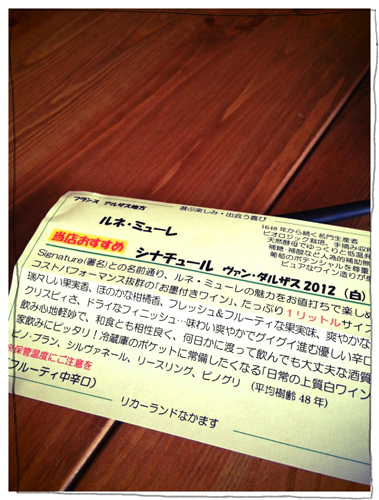 フランス アルザス地方 選ぶ楽しみ・出会う喜び
ルネ・ミューレ
1648年から続く名門生産者
ビオロジック栽培、手摘み収
天然酵母でゆっくりと低温発
補糖・補酸など人為的補助無
葡萄のポテンシャルを尊重
ピュアなワイン造りが
当店おすすめ
シナチュール ヴァン・ダルザス 2012 (白)
Signature(署名)との名前通り、ルネ・ミューレの魅力をお値打ちで楽しめ
コストパフォーマンス抜群の「お墨付きワイン」、たっぷり1リットルサイズ
瑞々しい果実香、ほのかな柑橘香、フレッシュ&フルーティな果実味、爽やかな
クリスピィさ、ドライなフィニッシュ…味わい爽やかでグイグイ進む優しい辛口
飲み心地軽妙で、和食とも相性良く、何日かに渡って飲んでも大丈夫な酒質
家飲みにピッタリ!冷蔵庫のポケットに常備したくなる「日常の上質白ワイン
ピノ・ブラン、シルヴァネール、リースリング、ピノグリ (平均樹齢48年)
※保管温度にご注意を
フルーティ中辛口)
リカーランドなかます